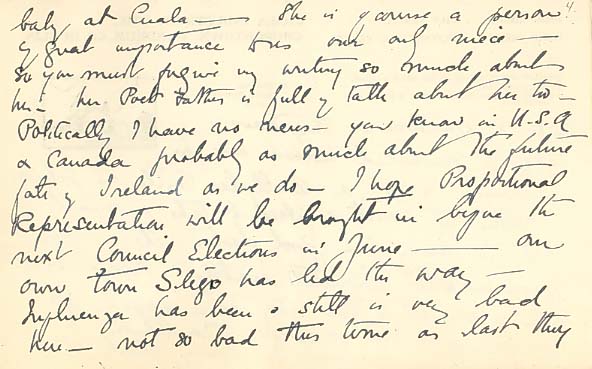 baby at Cuala — She is of course a person
of great importance to us our only niece —
So you must forgive my writing so much about
her — her Poet Father is full of talk about her too —
Politically I have no news — you know in U.S.A
& Canada probably as much about the future
fate of Ireland as we do — I hope Proportional
Representation will be brought in before the
next Council Elections in June — our
own town Sligo has led the way —
Influenza has been & still is very bad
here — not so bad this time as last they